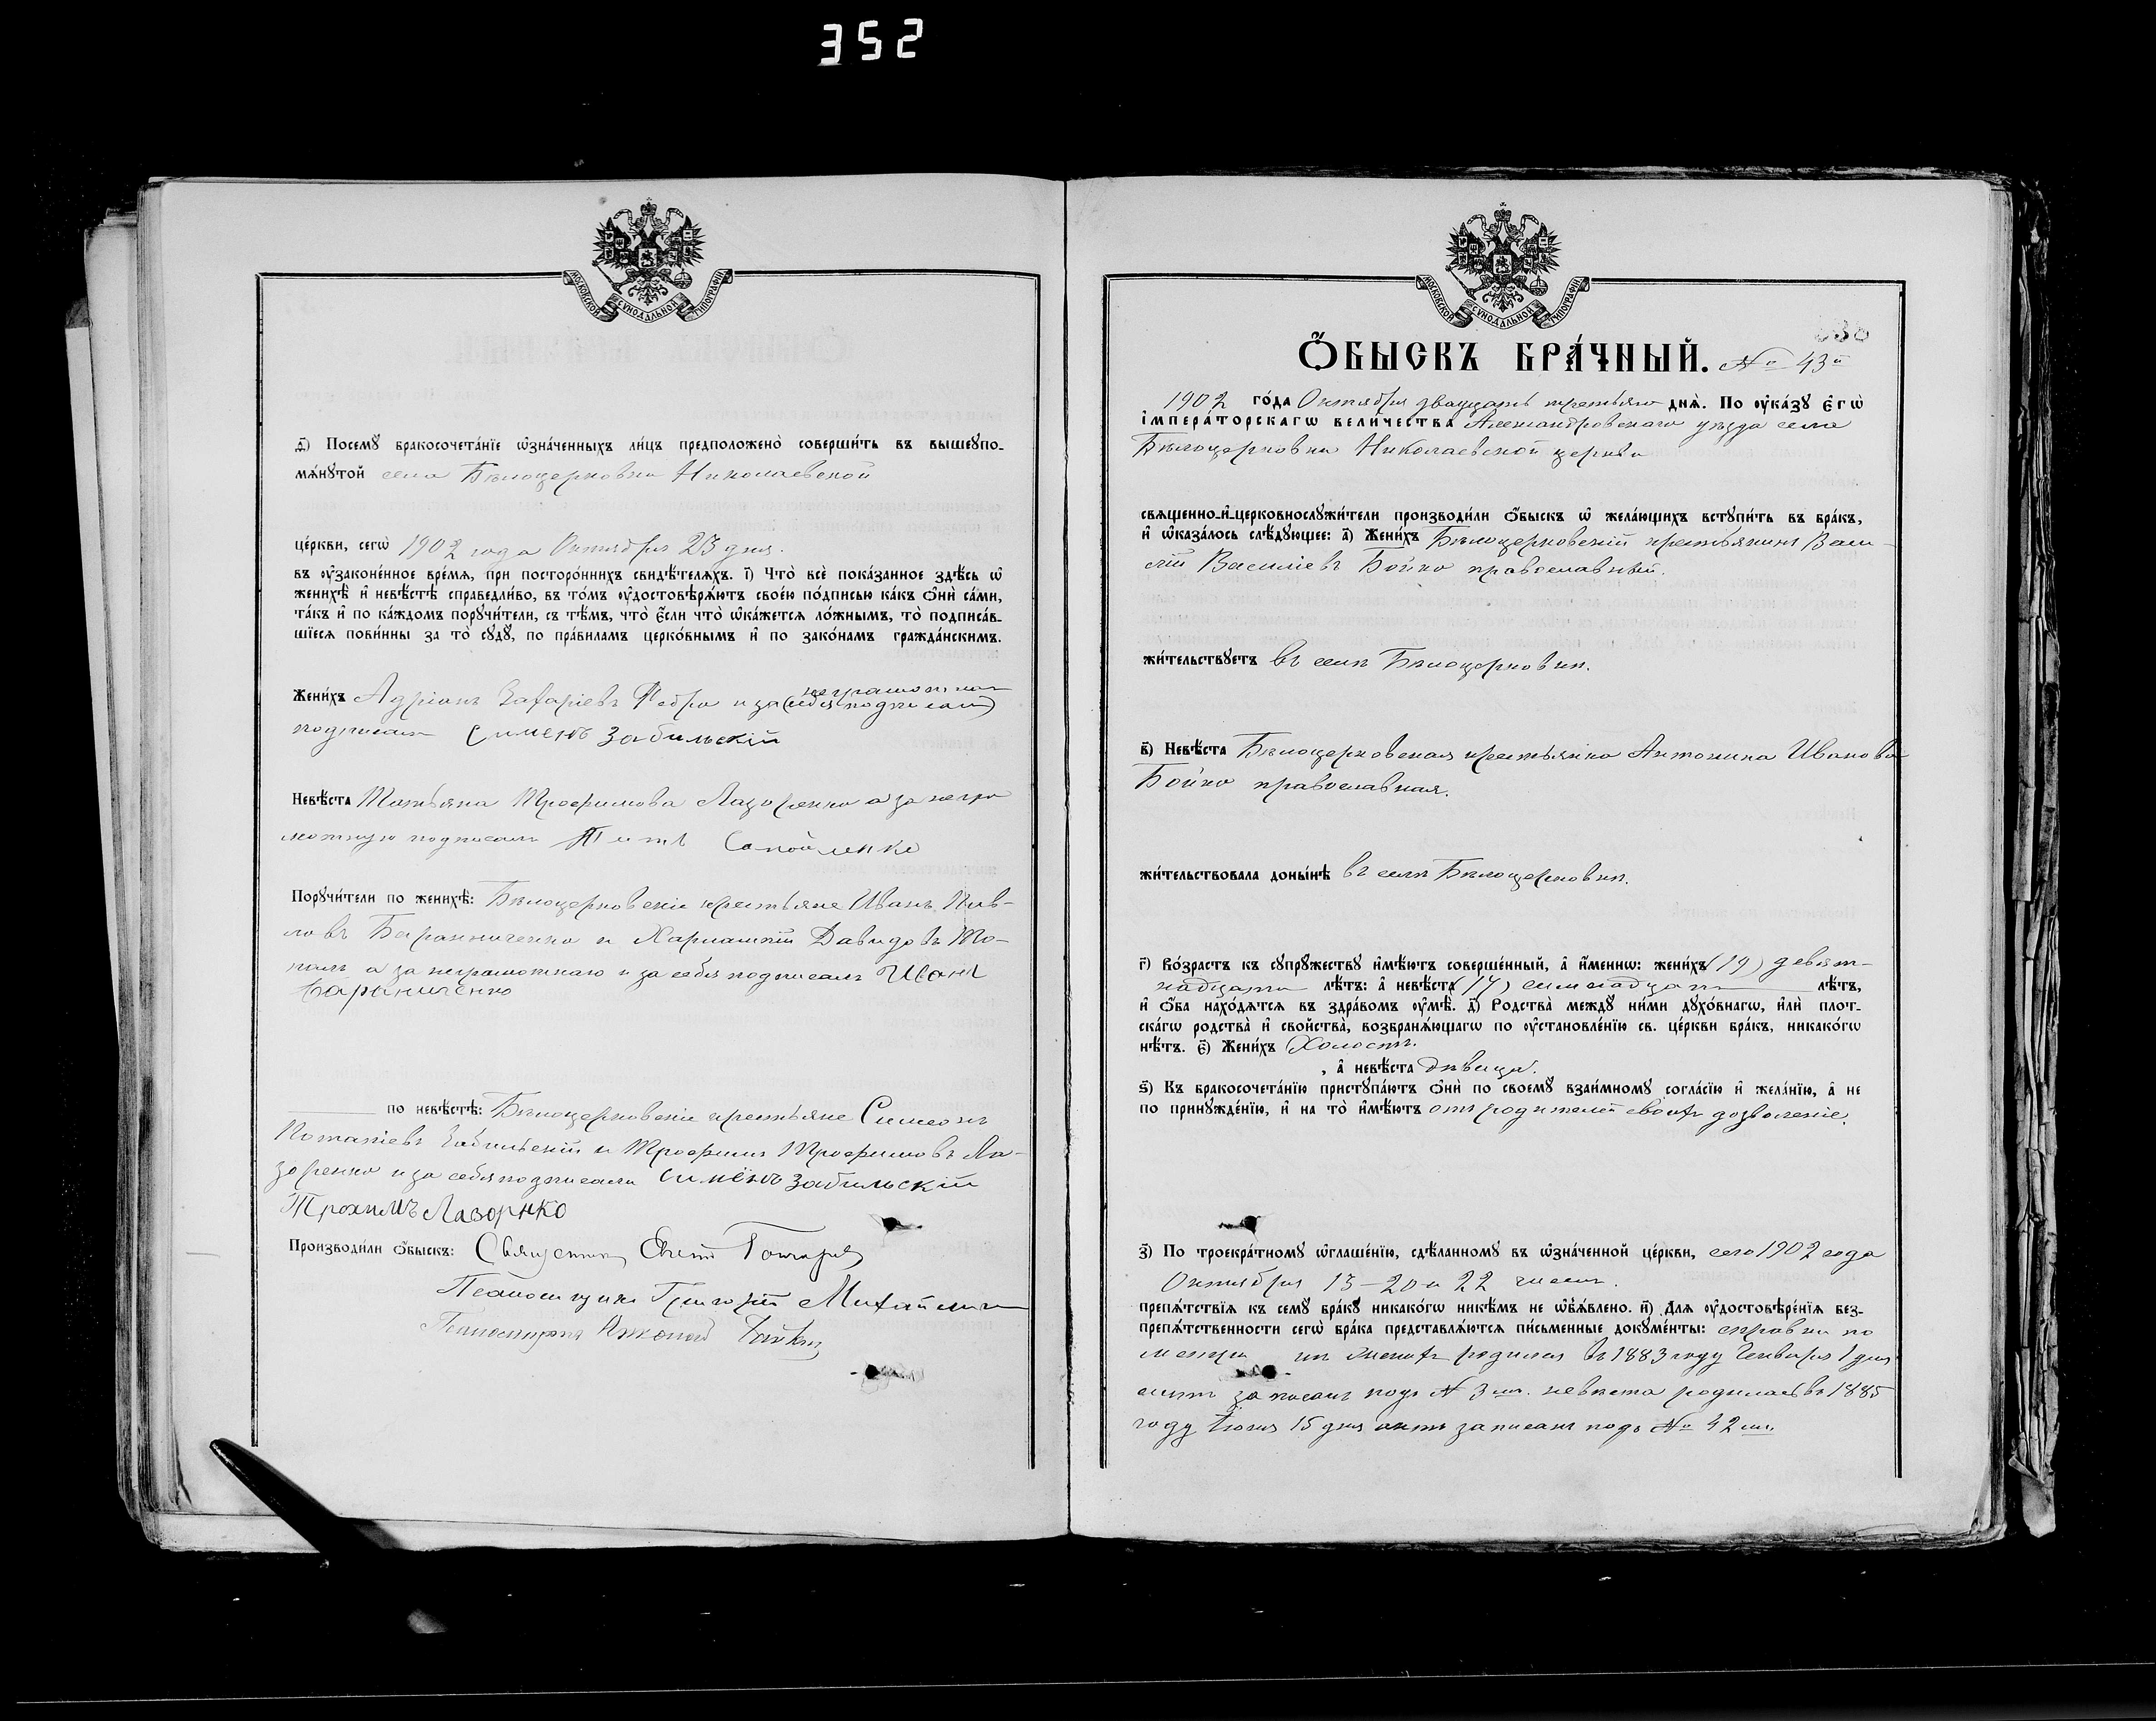 352
МОСКОВСКОЙ СѴНОДАЛЬНОЙ ТИПОГРАФІИ
д҃) Посемꙋ̀ бракосочета́нїе ѡ҆зна́ченныхъ ли́цъ предположено̀ соверши́ть въ вышеꙋпо-
мѧ́нꙋтой села Бѣлоцерковки Николаевской
це́ркви, сегѡ̀ 1902 года Октября 23 дня.
въ ᲂу҆зако́ненное вре́мѧ, при посторо́ннихъ свидѣ́телѧхъ. і҃) Что̀ всѐ пока́занное здѣ́сь ѡ҆
женихѣ̀ и҆ невѣ́стѣ справедли́во, въ то́мъ ᲂу҆достовѣрѧ́ютъ свое́ю по́дписью ка́къ ѻ҆нѝ са́ми,
та́къ и҆ по ка́ждомъ порꙋчи́тели, съ тѣ́мъ, что̀ є҆́сли что̀ ѡ҆ка́жетсѧ ло́жнымъ, то̀ подписа́в-
шїесѧ пови́нны за то̀ сꙋдꙋ̀, по пра́виламъ церко́внымъ и҆ по зако́намъ гражда́нскимъ.
Жени́хъ Адріанъ Захаріевъ и за неграмотнаго
подписалъ Сименъ Забильскій
Невѣ́ста Татьяна Трофимова Лазоренко а за негра
мотную подписалъ Титъ Самойленко
Порꙋчи́тели по женихѣ̀: Бѣлоцерковскіе крестьяне Иванъ Пав-
ловъ Баранниченко и Харлампій Давидовъ То-
а за неграмотнаго и за себя подписалъ Иванъ
Бараниченко
по невѣ́стѣ: Бѣлоцерковскіе крестьяне Симеонъ
Потапіевъ Забильскій и Трофимъ Трофимовъ Ла-
зоренко и за себя подписали Сименъ Забильскій
Трохимъ Лазорнко
Производи́ли ѻ҆́быскъ: Священникъ
Псаломщикъ Григорій
Псаломщикъ
МОСКОВСКОЙ СѴНОДАЛЬНОЙ ТИПОГРАФІИ
Ѻ҆́БЫСКЪ БРА́ЧНЫЙ. № 43й
1902 го́да Октября двадцать третьяго днѧ̀. По ᲂу҆ка́зꙋ є҆гѡ̀
і҆мпера́торскагѡ вели́чества Александровскаго уѣзда села
Бѣлоцерковки Николаевской церкви
свѧще́нно-и҆-церковнослꙋжи́тели производи́ли ѻ҆́быскъ ѡ҆ жела́ющихъ встꙋпи́ть въ бра́къ,
и҆ ѡ҆каза́лось слѣ́дꙋющее: а҃) Жени́хъ Бѣлоцерковскій крестьянинъ Васи-
лій Василіевъ Бойко православный.
жи́тельствꙋетъ въ селѣ Бѣлоцерковкѣ.
в҃) Невѣ́ста Бѣлоцерковская крестьянка Антонина Иванова
Бойко православная.
жи́тельствовала доны́нѣ въ селѣ Бѣлоцерковкѣ.
г҃) Во́зрастъ къ сꙋпрꙋ́жествꙋ и҆мѣ́ютъ соверше́нный, а҆ и҆́меннѡ: жени́хъ (19) девят-
надцати лѣ́тъ: а҆ невѣ́ста (17) семнадцати лѣ́тъ,
и҆ ѻ҆́ба нахо́дѧтсѧ въ здра́вомъ ᲂу҆мѣ̀. д҃) Родства̀ междꙋ̀ ни́ми дꙋхо́внагѡ, и҆лѝ пло́т-
скагѡ родства̀ и҆ свойства̀, возбранѧ́ющагѡ по ᲂу҆становле́нїю св. це́ркви бра́къ, никако́гѡ
нѣ́тъ. є҃) Жени́хъ Холостъ.
, а҆ невѣ́ста дѣвица.
ѕ҃) Къ бракосочета́нїю пристꙋпа́ютъ ѻ҆нѝ по своемꙋ̀ взаи́мномꙋ согла́сїю и҆ жела́нїю, а҆ не
по принꙋжде́нїю, и҆ на то̀ и҆мѣ́ютъ отъ родителей своихъ дозволеніе.
з҃) По троекра́тномꙋ ѡ҆глаше́нїю, сдѣ́ланномꙋ въ ѡ҆зна́ченной це́ркви, сего 1902 года
Октября 13 – 20 и 22 чиселъ.
препѧ́тствїѧ къ семꙋ̀ бра́кꙋ никако́гѡ никѣ́мъ не ѡ҆б̾ѧ́влено. и҃) Длѧ̀ ᲂу҆достовѣре́нїѧ без-
препѧ́тственности сегѡ̀ бра́ка представлѧ́ютсѧ пи́сьменные докꙋме́нты: справка по
метри кѣ женихъ родился въ 1883 году Января 1 дня
актъ записанъ подъ № 3 мъ. невѣста родилась въ 1885
году Іюня 15 дня актъ записанъ подъ № 42 мъ.